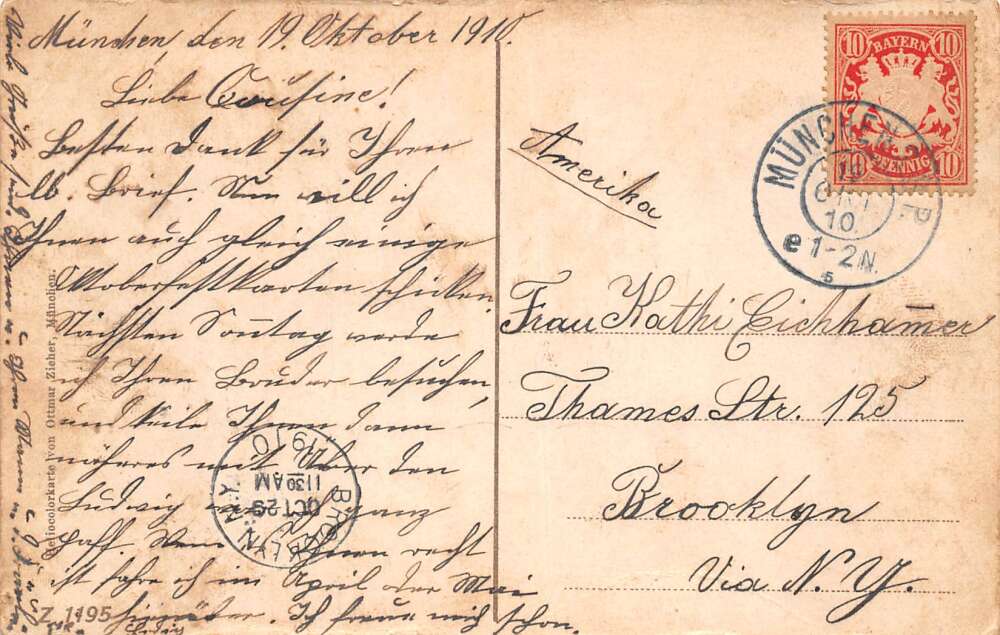 München, den 19. Oktober 1910.
Liebe Cousine!
Besten Dank für Ihren
lb. Brief. Nun will ich
Ihnen auch gleich einige
Oktoberfestkarten schicken
Nächsten Sonntag werde
ich Ihren Bruder besuchen,
und teile Ihnen dann
näheres mit. Über den
Ludwig ganz
paff. Wenn Ihnen recht
ist fahre ich im April oder Mai
hinüber. Ich freue mich schon.
Viele Grüße
Ihnen u. Ihrem Mann
Heliocolorkarte von Ottmar Zieher, München.
Z. 1495
BROOKLYN N.Y.
OCT 29
11 30 AM
1910
BAYERN
10 10
10 PFENNIG 10
MÜNCHEN 2 B.P.
19
OKT
10.
e 1-2 N.
Amerika
Frau Kathi Eichhamer
Thames Str. 125
Brooklyn
Via N. Y.